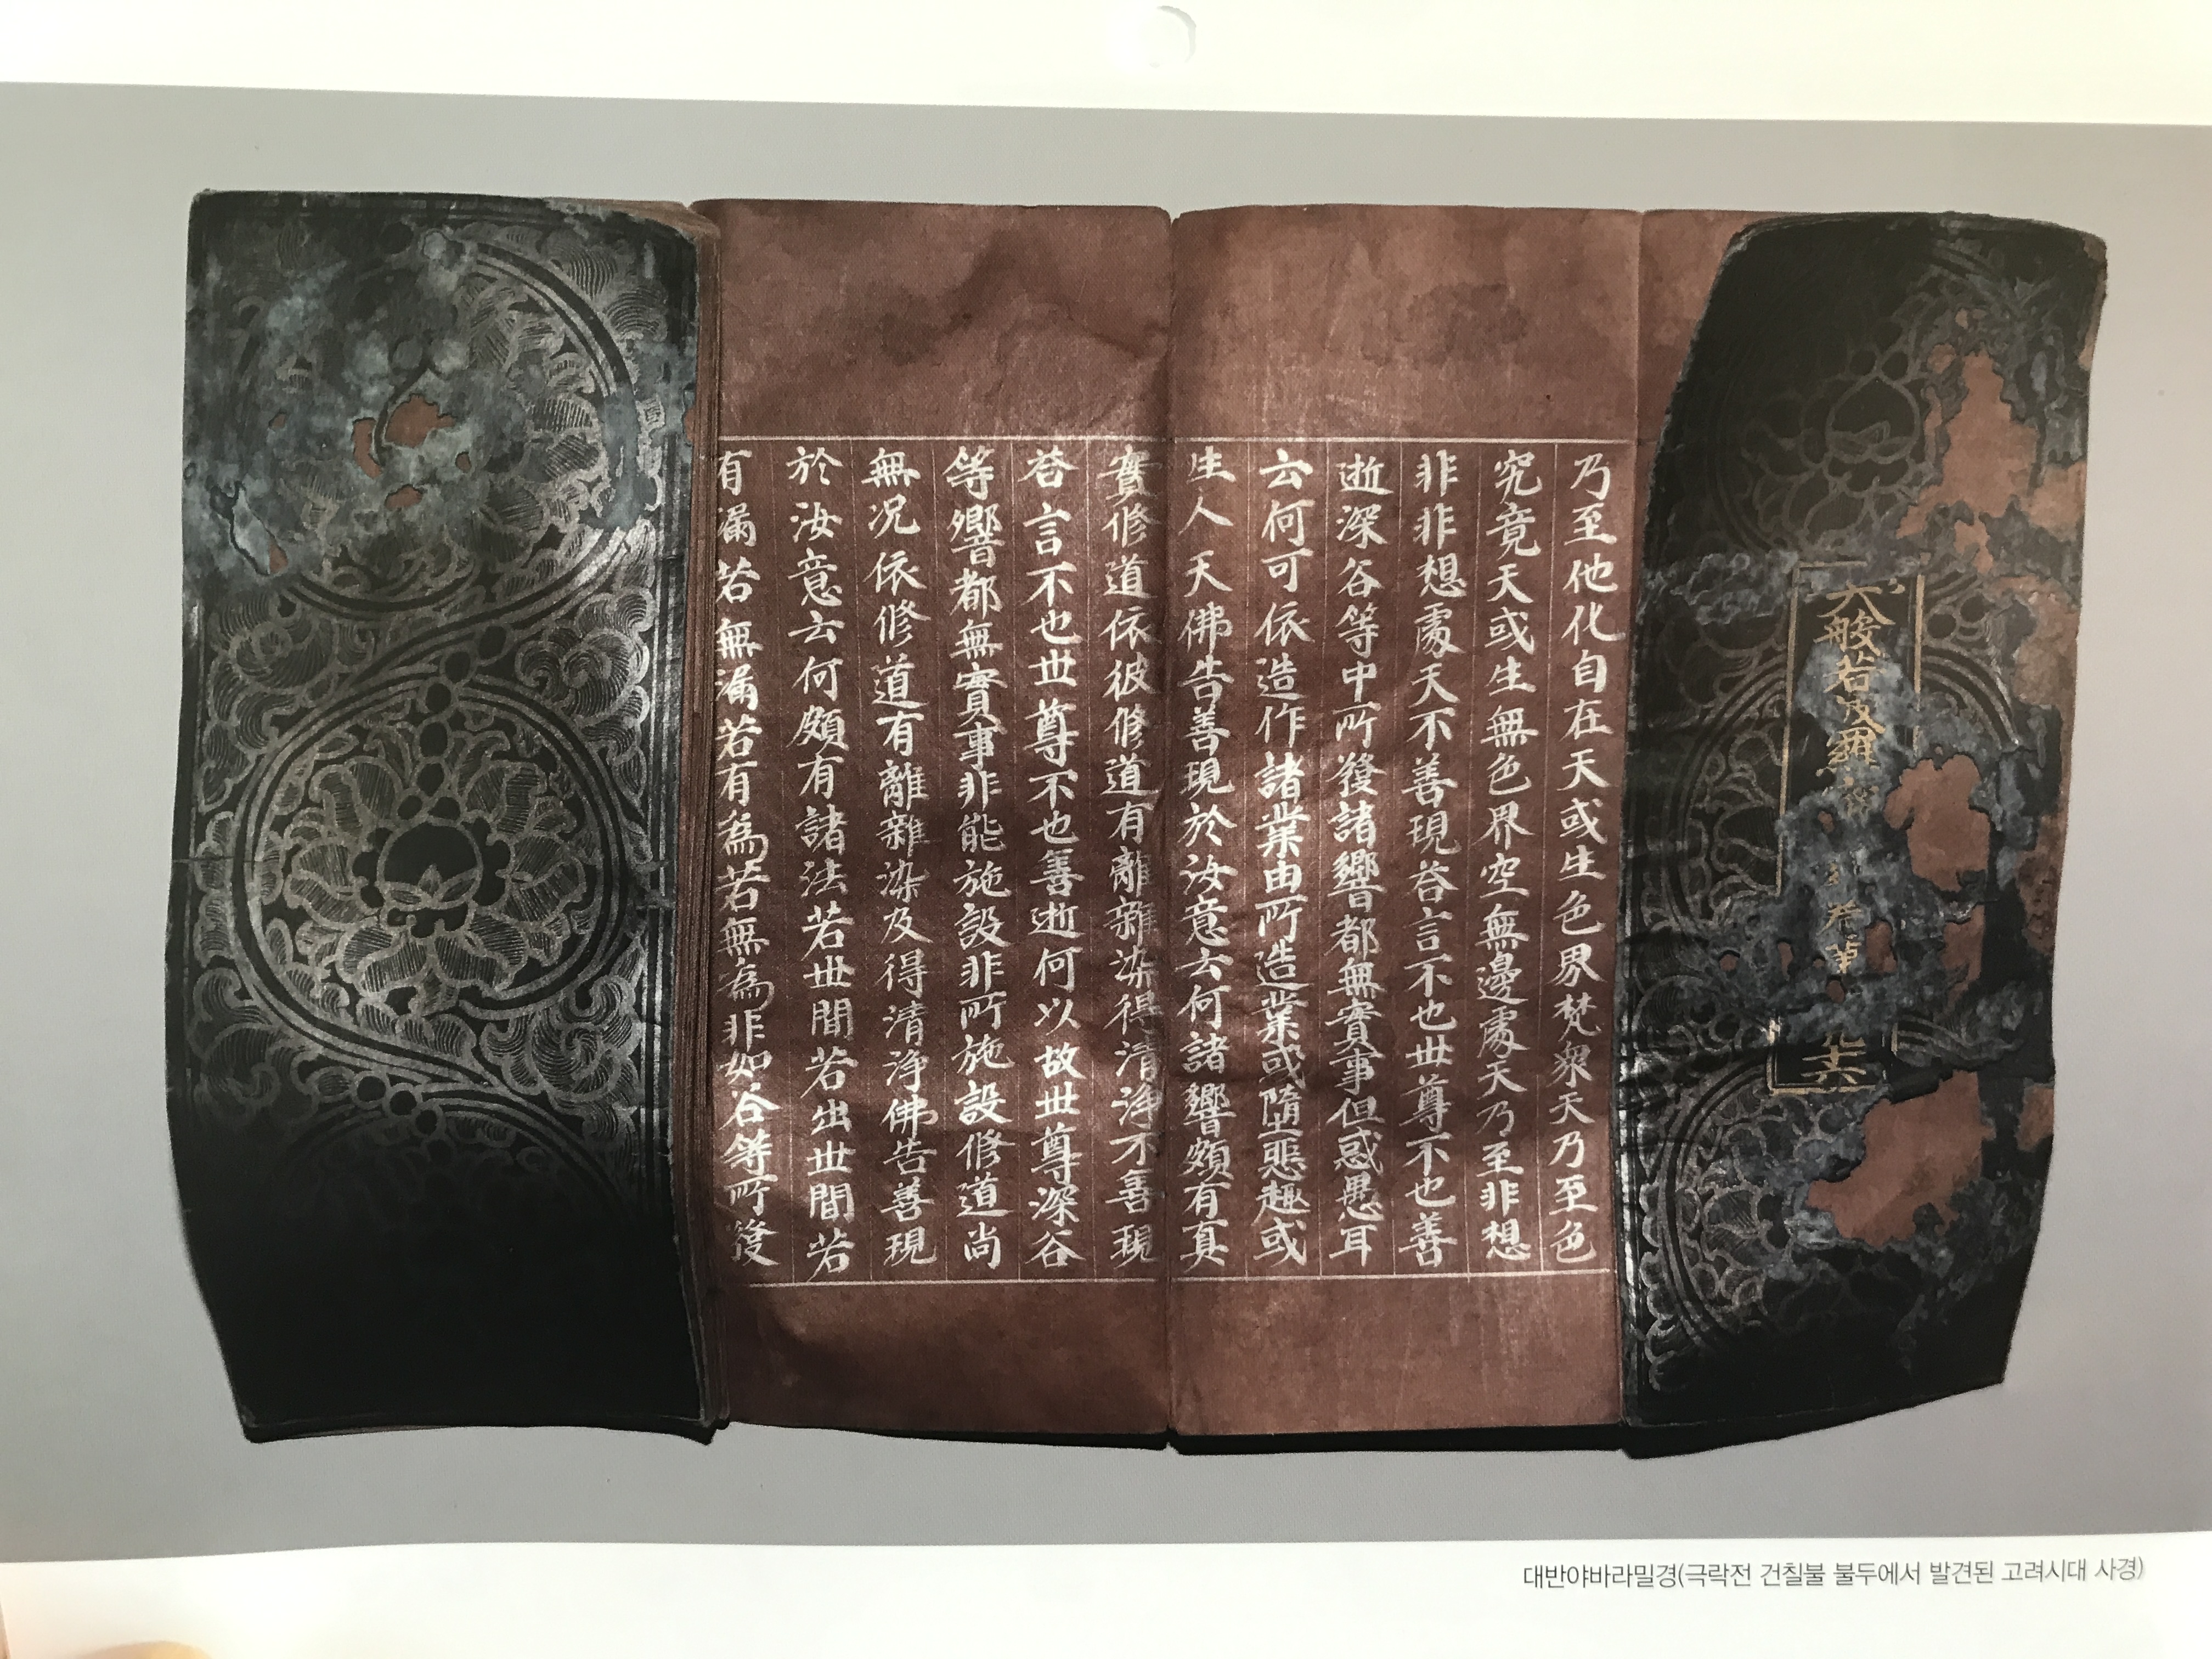 大般若波羅
九十六
乃至他化自在天或生色界梵衆天乃至色
究竟天或生無色界空無邊處天乃至非想
非非想處天不善現荅言不也世尊不也善
逝深谷等中所發諸響都無實事但惑愚耳
云何可依造作諸業由所造業或墮惡趣或
生人天佛告善現於汝意云何諸響頗有真
實修道依彼修道有離雜染得清淨不善現
荅言不也世尊不也善逝何以故世尊深谷
等響都無實事非能施設非所施設修道尚
無況依修道有離雜染及得清淨佛告善現
於汝意云何頗有諸法若世間若出世間若
有漏若無漏若有為若無為非如谷等所發
대반야바라밀경(극락전 건칠불 불두에서 발견된 고려시대 사경)